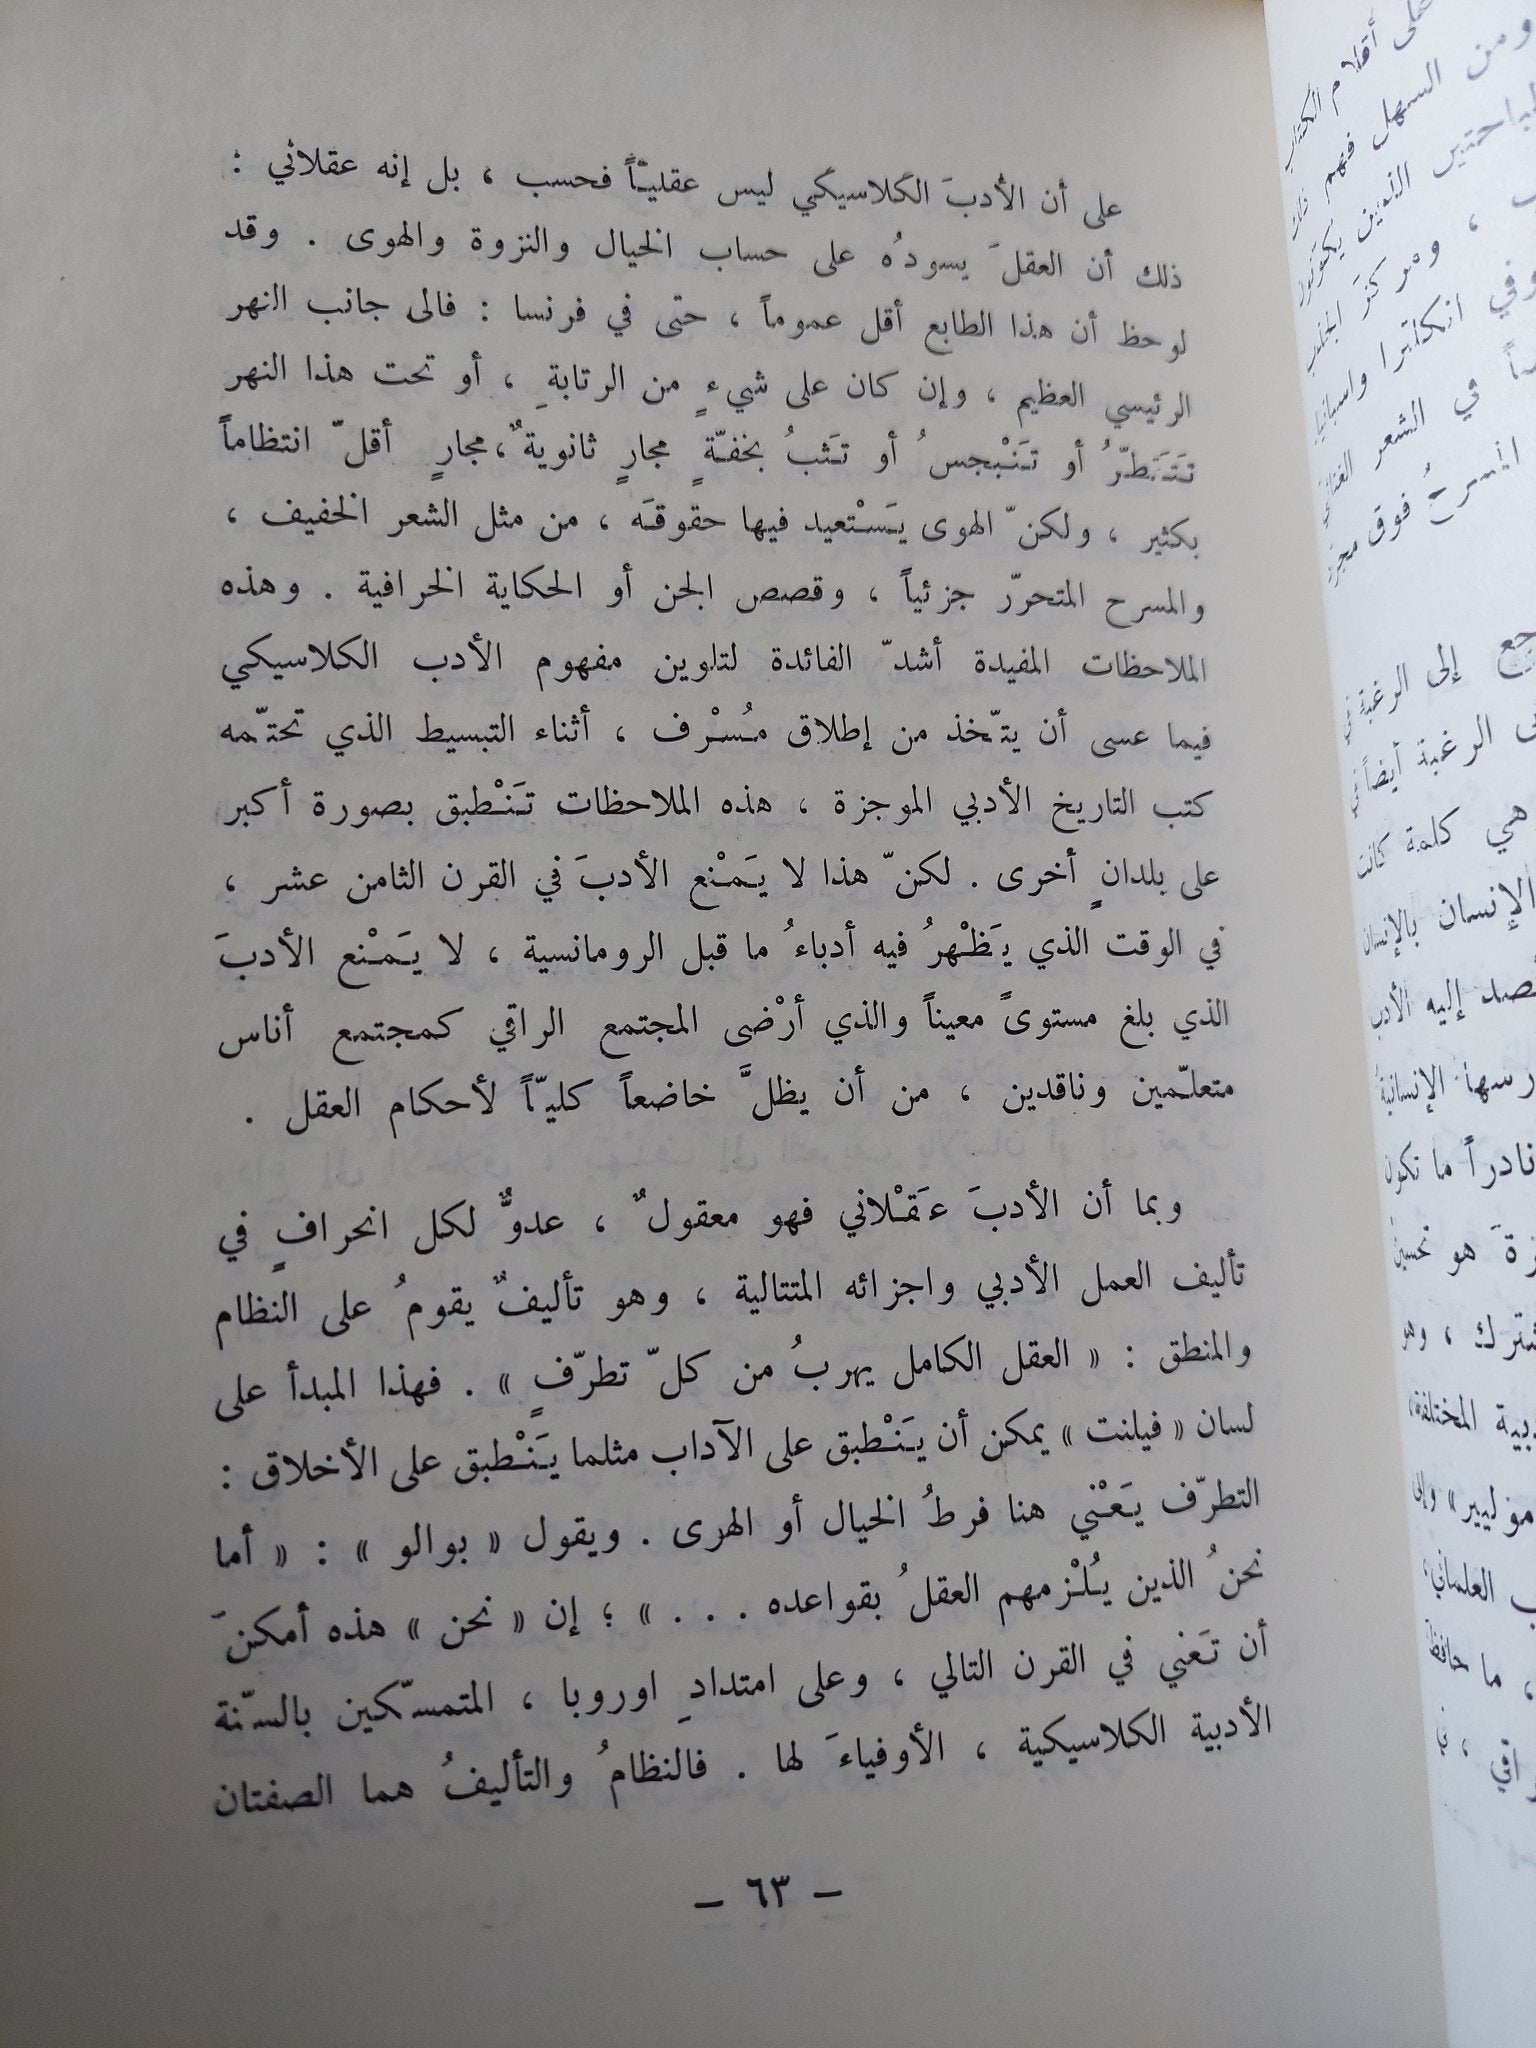 على أن الأدبَ الكلاسيكي ليس عقليّاً فحسب ، بل إنه عقلاني :
ذلك أن العقلَ يسودُه على حساب الخيال والنزوة والهوى . وقد
لوحظ أن هذا الطابع أقل عموماً ، حتى في فرنسا : فالى جانب النهر
الرئيسي العظيم ، وإن كان على شيءٍ من الرتابةِ ، أو تحت هذا النهر
أو تَنْبجسُ أو تَثبُ بخفّةٍ مجارٍ ثانويةٌ،مجارٍ أقلّ انتظاماً
بكثير ، ولكنّ الهوى يَسْتعيد فيها حقوقَه ، من مثل الشعر الخفيف ،
والمسرح المتحرّر جزئياً ، وقصص الجن أو الحكاية الخرافية . وهذه
الملاحظات المفيدة أشدّ الفائدة لتلوين مفهوم الأدب الكلاسيكي
فيما عسى أن يتّخذ من إطلاق مُسْرف ، أثناء التبسيط الذي تحتّمه
كتب التاريخ الأدبي الموجزة ، هذه الملاحظات تَنْطبق بصورة أكبر
على بلدانٍ أخرى . لكنّ هذا لا يَمْنع الأدبَ في القرن الثامن عشر ،
في الوقت الذي يَظْهرُ فيه أدباءُ ما قبل الرومانسية ، لا يَمْنع الأدبَ
الذي بلغ مستوىً معيناً والذي أرْضى المجتمع الراقي كمجتمع أناس
متعلّمين وناقدين ، من أن يظلَّ خاضعاً كليّاً لأحكام العقل .
وبما أن الأدبَ عَقْلاني فهو معقولٌ ، عدوٌّ لكل انحرافٍ في
تأليف العمل الأدبي واجزائه المتتالية ، وهو تأليفٌ يقومُ على النظام
والمنطق : « العقل الكامل يهربُ من كلّ تطرّفٍ » . فهذا المبدأ على
لسان « فيلنت » يمكن أن يَنْطبق على الآداب مثلما يَنْطبق على الأخلاق :
التطرّف يَعْني هنا فرطُ الخيال أو الهوى . ويقول « بوالو » : « أما
نحنُ الذين يُلْزمهم العقلُ بقواعده . . . » ؛ إن « نحن » هذه أمكنَ
أن تَعني في القرن التالي ، وعلى امتدادِ اوروبا ، المتمسّكين بالسنّة
الأدبية الكلاسيكية ، الأوفياءَ لها . فالنظامُ والتأليفُ هما الصفتان
– ٦٣ –
أقلام الكتاب
ومن السهل فهم
وفي انكلترا واسبانيا
في الشعر
فوق
إلى الرغبة في
الرغبة أيضاً
هي كلمة كانت
الإنسان بالإنسان
إليه الأدب
الإنسانية
نادراً ما تكون
هو
، وهو
المختلفة
، ما